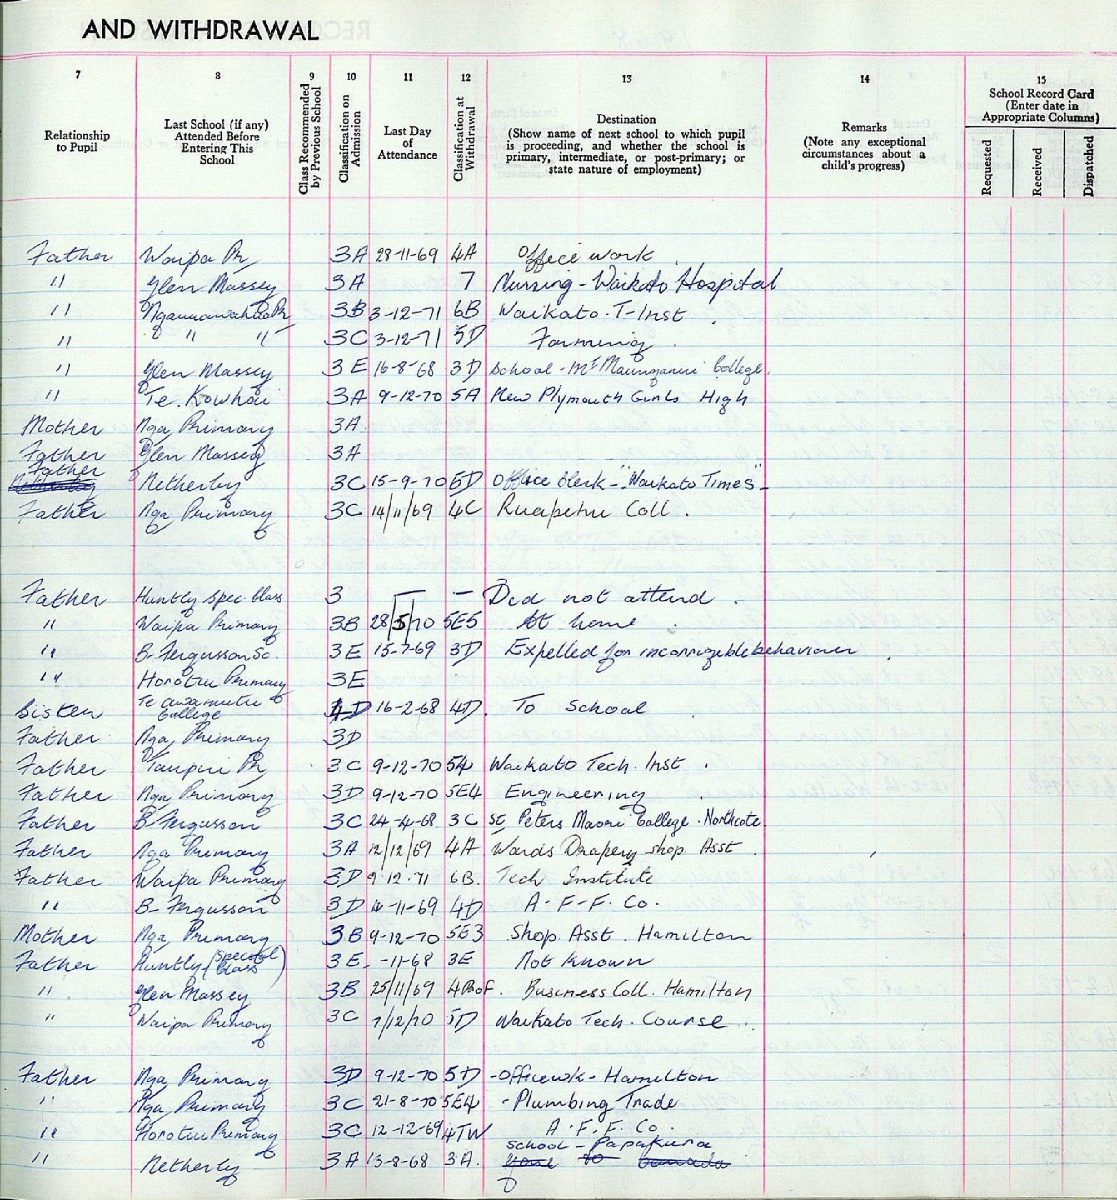 AND WITHDRAWAL
7 8 9 10 11 12 13 14 15
Relationship to Pupil
Last School (if any) Attended Before Entering This School
Class Recommended by Previous School
Classification on Admission
Last Day of Attendance
Classification at Withdrawal
Destination (Show name of next school to which pupil is proceeding, and whether the school is primary, intermediate, or post-primary; or state nature of employment)
Remarks (Note any exceptional circumstances about a child's progress)
School Record Card (Enter date in Appropriate Columns)
Requested Received Dispatched
Father Waipa Pr 3A 28-11-69 4A Office work
" Glen Massey 3A 7 Nursing - Waikato Hospital
" Ngaruawahia Pr 3B 3-12-71 6B Waikato T-Inst.
" " " " 3C 3-12-71 5D Farming
" Glen Massey 3E 16-8-68 3D School - Mt Maunganui College.
" Te Kowhai 3A 9-12-70 5A New Plymouth Girls High
Mother Nga Primary 3A
Father Glen Massey 3A
Father Netherby 3C 15-9-70 5D Office Clerk - "Waikato Times" -
Father Nga Primary 3C 14/11/69 4C Ruapehu Coll.
Father Huntly Spec. Class 3 — — Did not attend.
" Waipa Primary 3B 28/5/70 5E5 At home
" B-Fergusson Sc. 3E 15-7-69 3D Expelled for incorrigible behaviour
" Horotiu Primary 3E
Sister Te Awamutu College 4D 16-2-68 4D. To School
Father Nga Primary 3D
Father Taupiri Pr 3C 9-12-70 54 Waikato Tech. Inst.
Father Nga Primary 3D 9-12-70 5E4 Engineering
Father B-Fergusson 3C 24-4-68 3C St Peters Maori College. Northcote.
Father Nga Primary 3A 12/12/69 4A Wards Drapery Shop Asst.
Father Waipa Primary 3D 9.12.71 6B. Tech Institute
" B-Fergusson 3D 14-11-69 4D A-F-F. Co.
Mother Nga Primary 3B 9-12-70 5E3 Shop Asst. Hamilton
Father Huntly (Special Class) 3E. -11-68 3E Not Known
" Glen Massey 3B 25/11/69 4Prof. Business Coll. Hamilton
" Waipa Primary 3C 7/12/70 5D Waikato Tech. Course
Father Nga Primary 3D 9-12-70 5D - Office wk - Hamilton
" Nga Primary 3C 21-8-70 5E4 - Plumbing Trade
" Horotiu Primary 3C 12-12-69 4TW A.F.F. Co.
" Netherby 3A 13-8-68 3A. School - Papakura
Gone to Canada